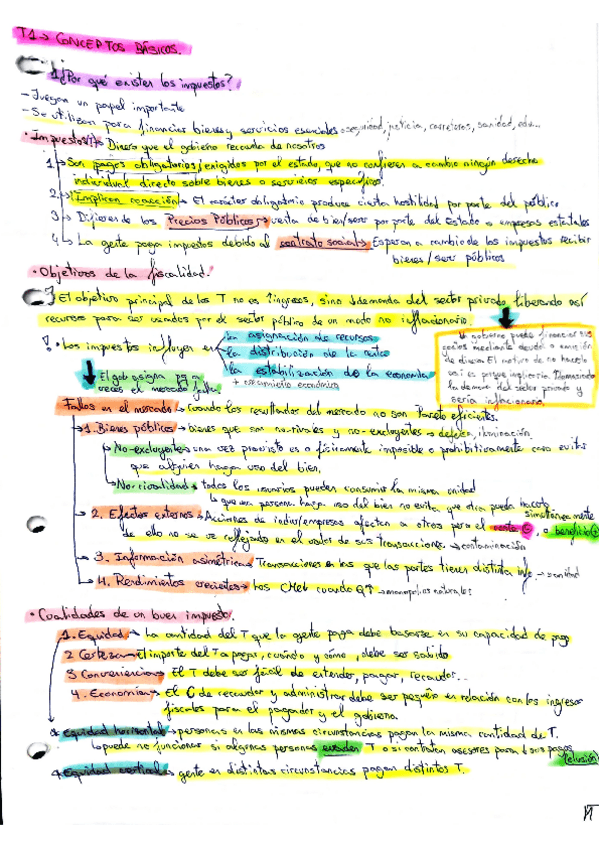 T1→ CONCEPTOS BÁSICOS.
1¿Por qué existen los impuestos?
- Juegan un papel importante
- Se utilizan para financiar bienes y servicios esenciales → seguridad, justicia, carreteras, sanidad, edu...
• Impuestos(T)→ Dinero que el gobierno recauda de nosotros
1→ Son pagos obligatorios, exigidos por el estado, que no confieren a cambio ningún derecho
individual directo sobre bienes o servicios específicos.
2→ Implican coacción→ El carácter obligatorio produce cierta hostilidad por parte del público
3→ Difieren de los Precios Públicos→ venta de bien/serv por parte del Estado o empresas estatales
4→ La gente paga impuestos debido al contrato social→ Esperan a cambio de los impuestos recibir
bienes/ser públicos
• Objetivos de la fiscalidad:
El objetivo principal de los T no es ↑ingresos, sino ↓demanda del sector privado liberando así
recursos para ser usados por el sector público de un modo no inflacionario.
! • Los impuestos influyen en
la asignación de recursos
la distribución de la
la estabilización de la economía
+ crecimiento económico
El gobierno puede financiar sus
mediante deuda o emisión
de dinero. El motivo de no hacerlo
así es porque
la demanda del sector privado y
sería inflacionario.
El gob asigna pq a
veces el mercado falla.
Fallos en el mercado→ cuando los resultados del mercado no son Pareto eficientes.
1. Bienes públicos→ bienes que son no-rivales y no-excluyentes → defensa, iluminación
No-excluyentes→ una vez provisto es o físicamente imposible o prohibitivamente caro evitar
que alguien haga uso del bien.
No-rivalidad→ todos los usuarios pueden consumir la misma unidad
que una persona haga uso del bien no evita que otra pueda hacerlo
simultáneamente
2. Efectos externos→ Acciones de indiv/empresas afectan a otros pero el costo, o beneficio
de ello no se ve reflejado en el valor de sus transacciones. → contaminación
3. Información asimétrica→ Transacciones en las que las partes tienen distinta info → sanidad
4. Rendimientos crecientes→ Los CMe↓ cuando Q↑ → monopolios naturales
• Cualidades de un buen impuesto.
1. Equidad→ La cantidad del T que la gente paga debe basarse en su capacidad de pago
2 Certeza→ El importe del T a pagar, cuándo y cómo, debe ser sabido
3 Conveniencia→ El T debe ser fácil de entender, pagar, recaudar...
4. Economía→ El C de recaudar y administrar debe ser pequeño en relación con los ingresos
fiscales para el pagador y el gobierno.
Equidad horizontal→ personas en las mismas circunstancias pagan la misma cantidad de T.
puede no funcionar si algunas personas evaden T o si contratan asesores para ↓ sus pagos
(elusión)
Equidad vertical→ gente en distintas circunstancias pagan distintos T.